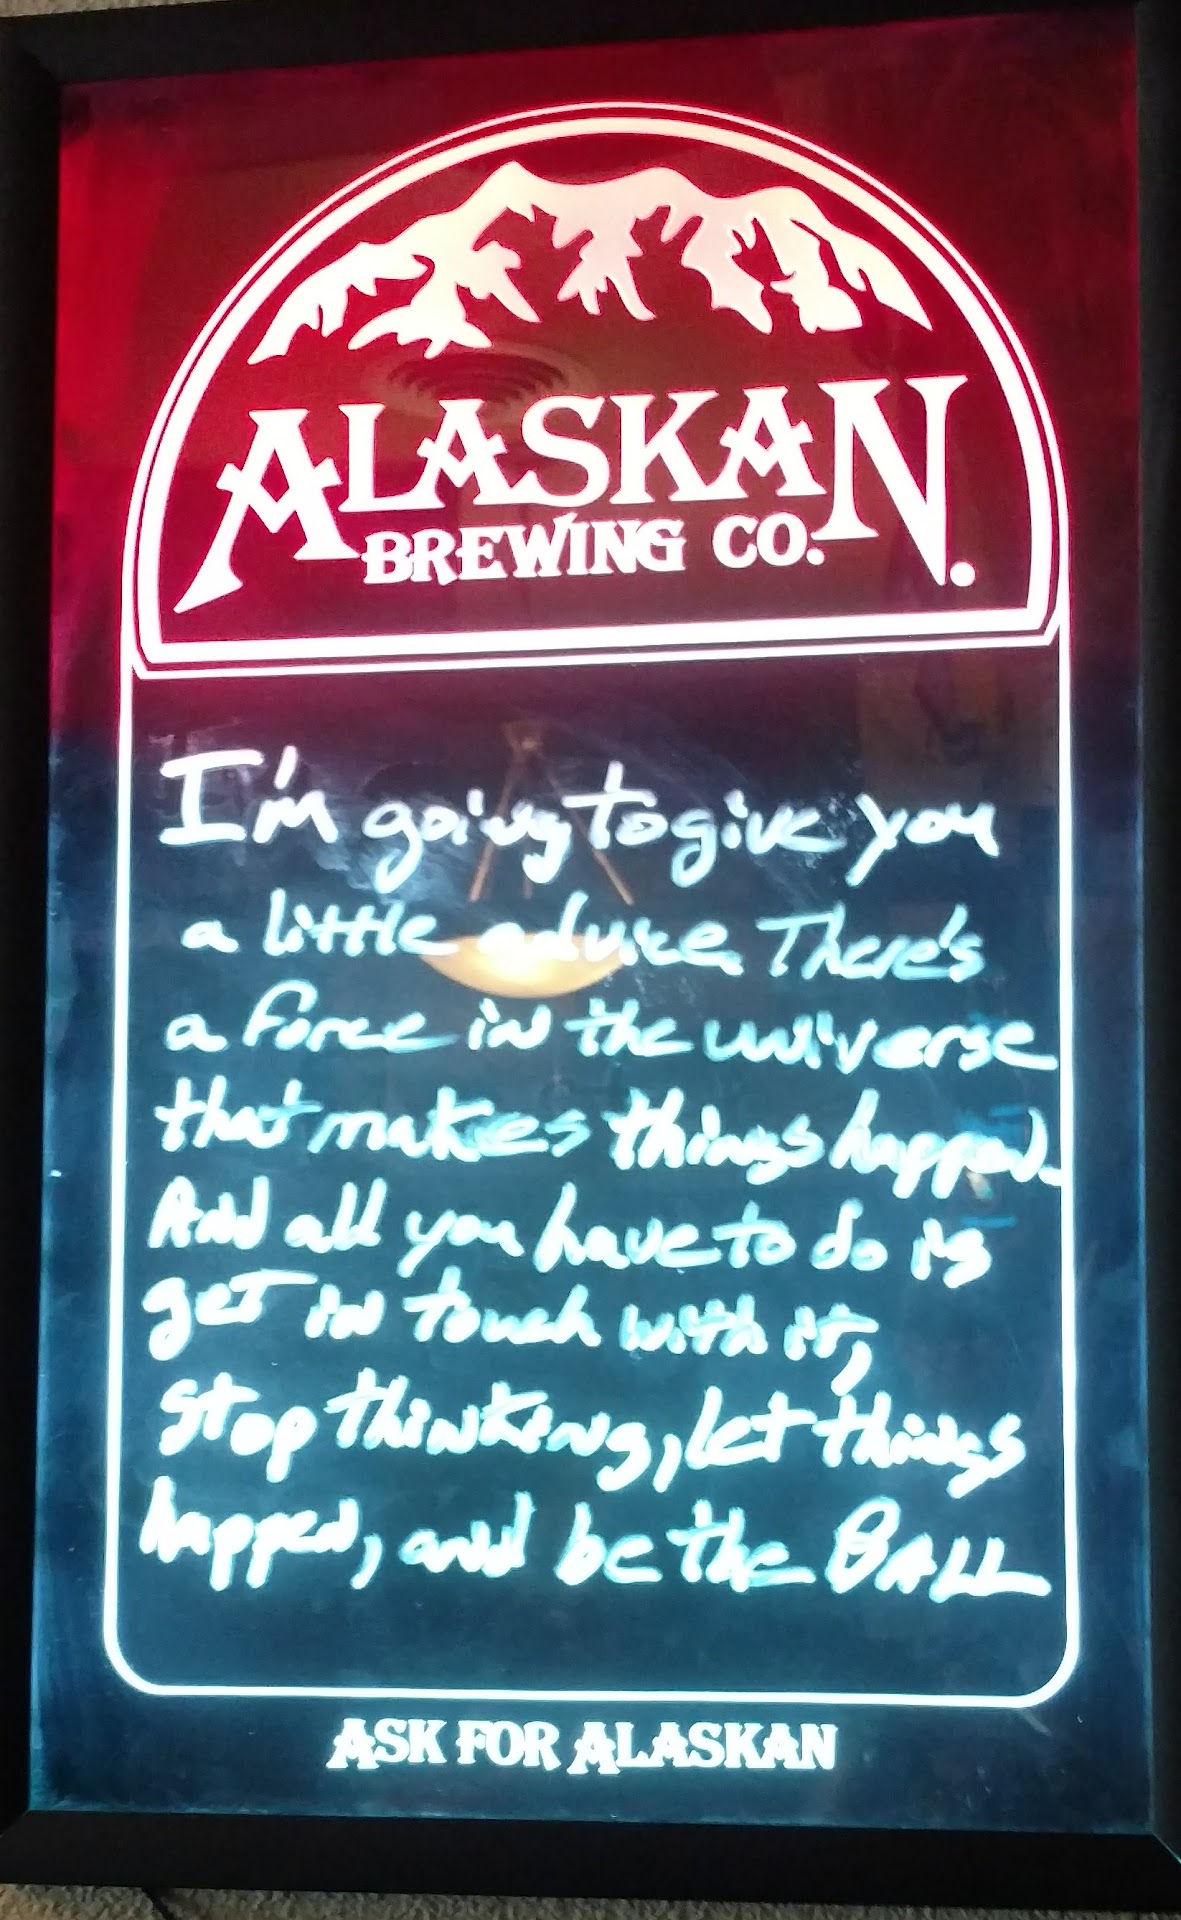 ALASKAN
BREWING CO.
I'm going to give you
a little advice. There's
a force in the universe
that makes things happen.
And all you have to do is
get in touch with it,
stop thinking, let things
happen, and be the BALL
ASK FOR ALASKAN